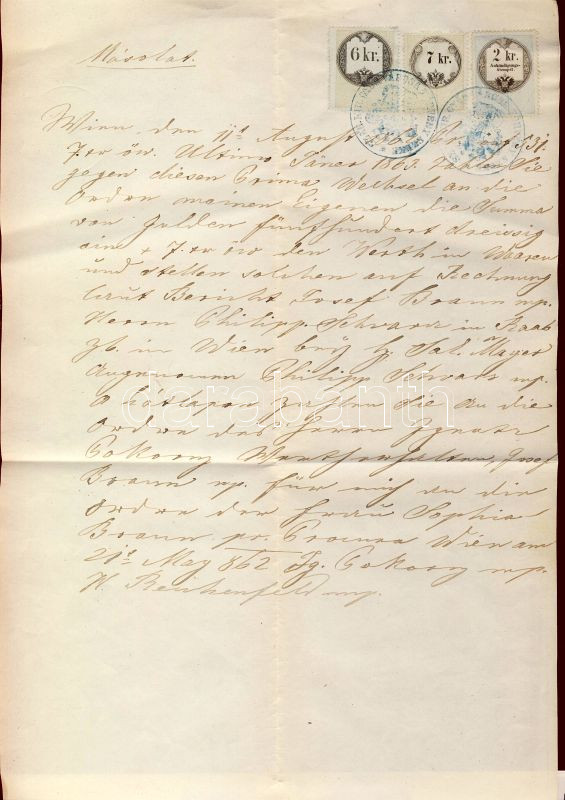 6 kr.
7 kr.
2 kr.
Ankündigungs-
Stempel.
Másolat.
Wien den 11t August 186 531.
7.xr öw. Ultimo Jäner 1863. zahlen Sie
gegen diesen Prima Wechsel an die
Ordre meinen Eigenen die Summa
von Gulden fünfhundert dreissig
ein + 7.xr öw den Werth in Waaren
und stellen solchen auf Rechnung
laut Bericht Josef Braun mp.
Herrn Philipp Schwarz in Raab
zb. in Wien bey H. Sal. Mayer
Angenomen Philipp Schwarz mp.
A hátlapon Zahlen Sie an die
Ordre des Herrn Ignatz
Pokorny Werth erhalten, Josef
Braun mp. für mich an die
Ordre der Frau Sophia
Braun pr Procura Wien am
21t May 862 Ig. Pokorny mp.
H. Reichenfeld mp.
darabanth